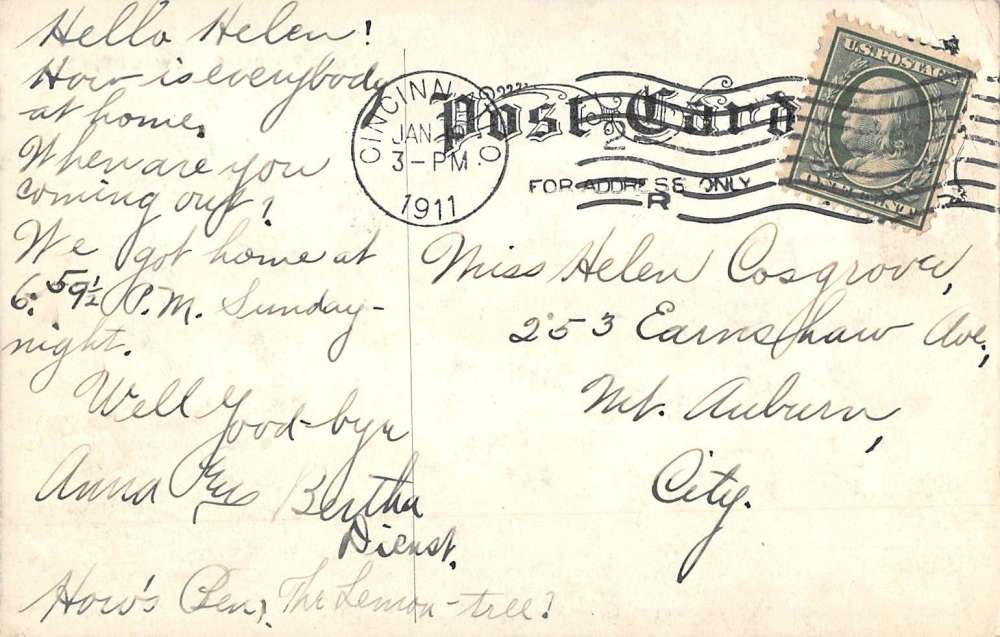 Hello Helen!
How is everybody
at home.
When are you
coming out?
We got home at
6:59½ P.M. Sunday-
night.
Well Good-bye
Anna Bertha
Dienst.
How's Ben, The Lemon-tree?
CINCINN O
JAN
3-PM
1911
Post Card
FOR ADDRESS ONLY
R
U.S. POSTAGE
Miss Helen Cosgrove,
253 Earnshaw Ave.,
Mt. Auburn,
City.